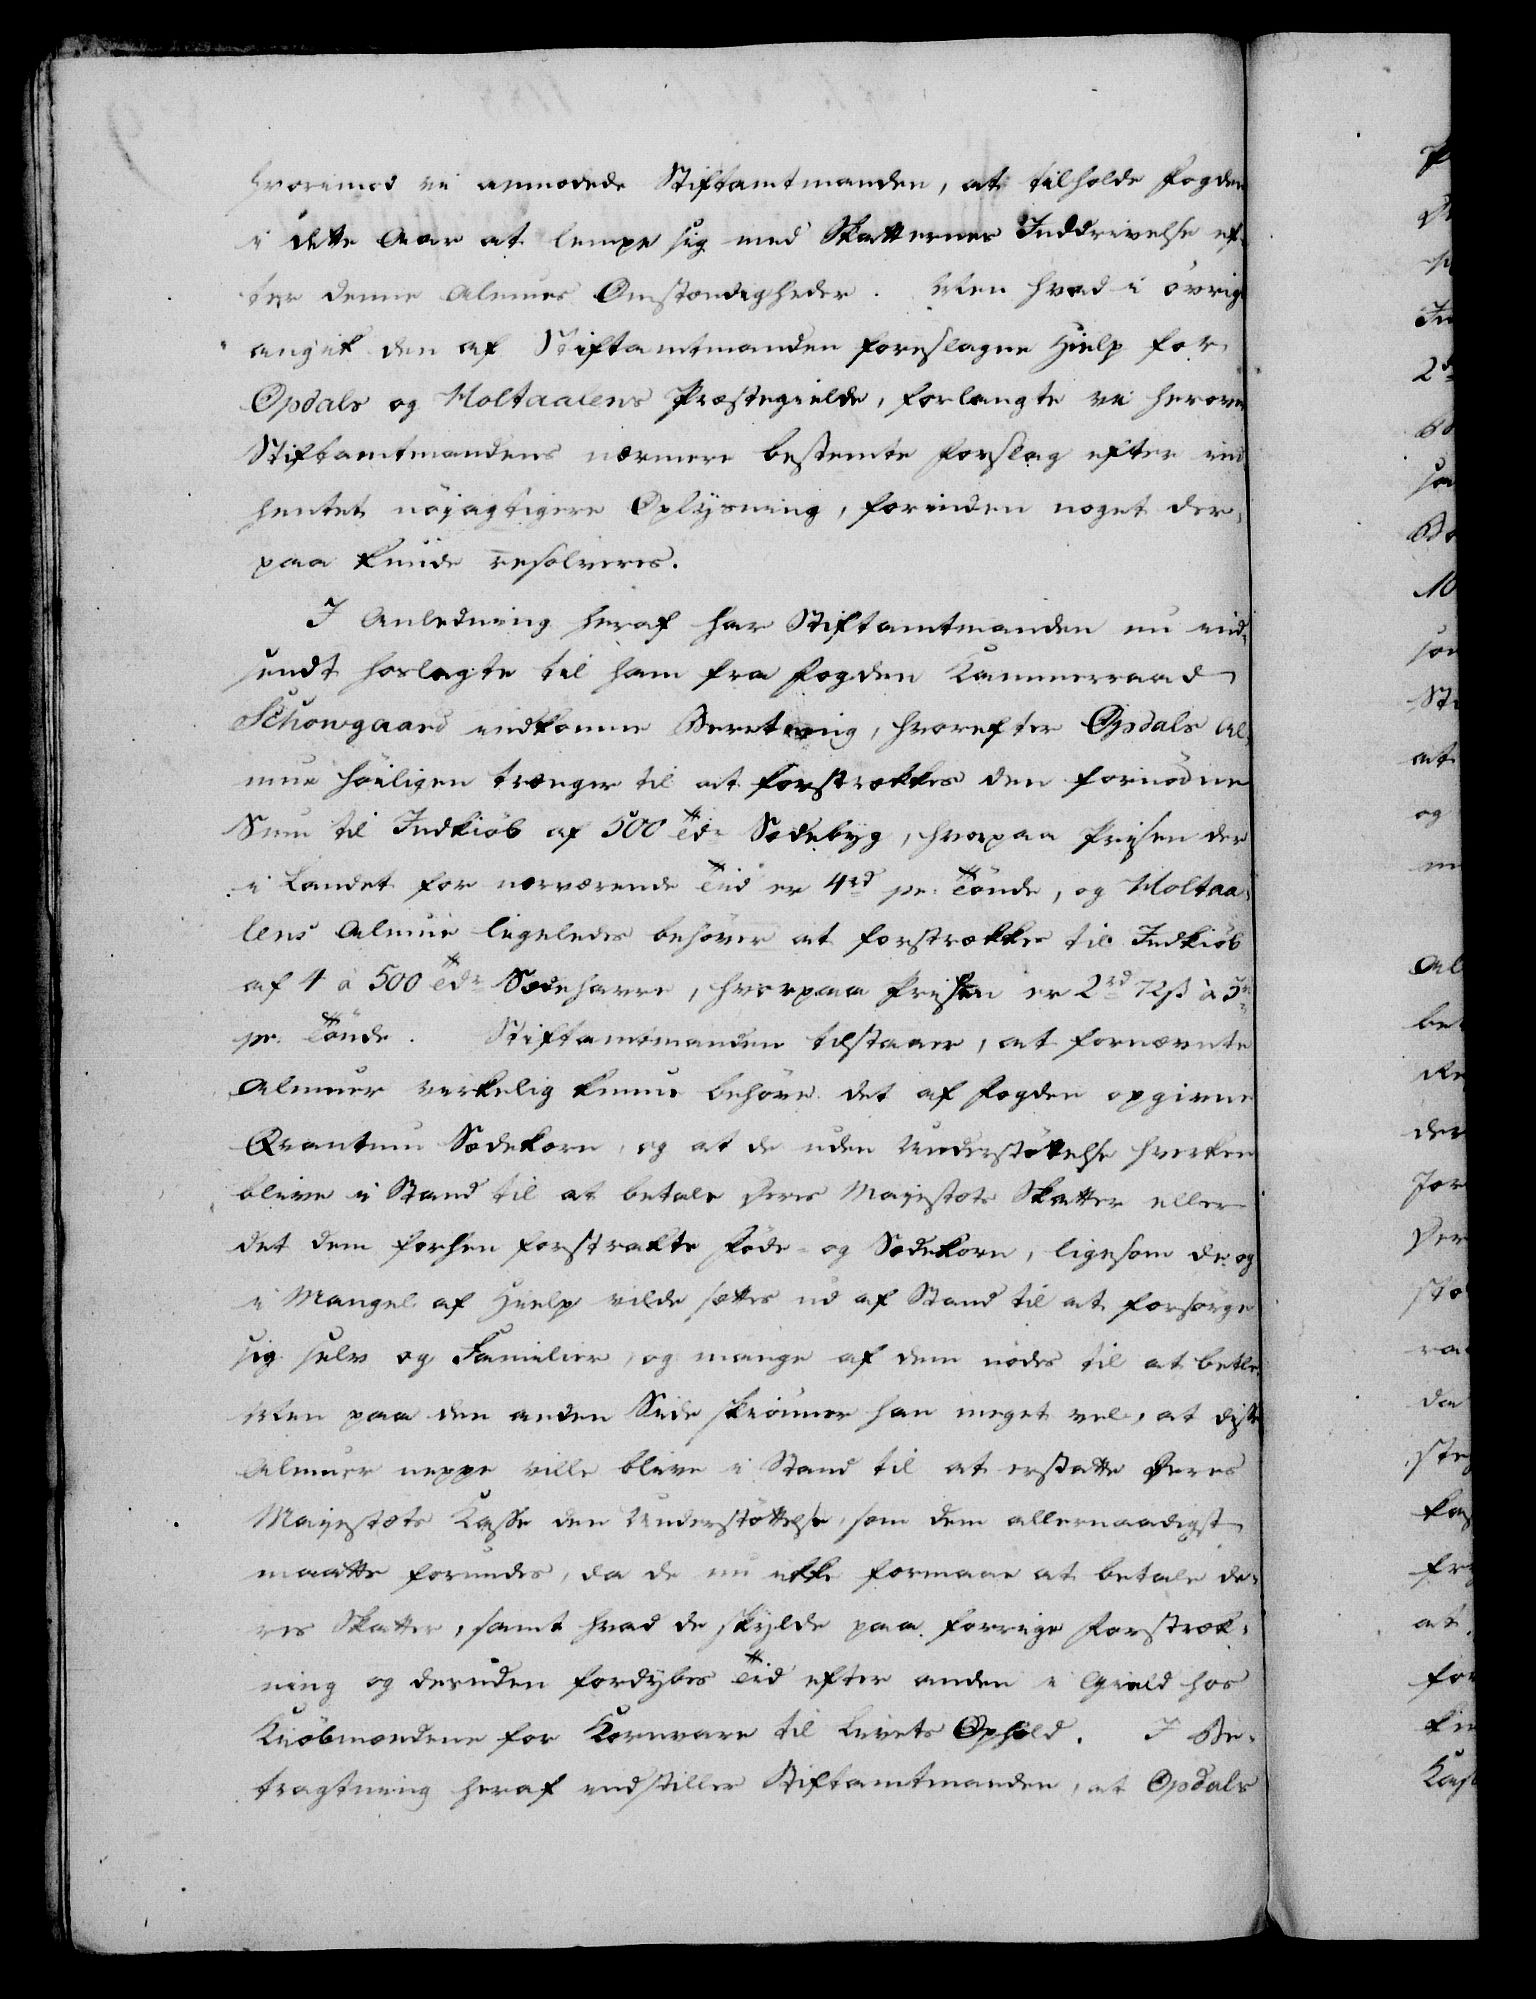 hvorimod vi anmodede Stiftamtmanden, at tilholde Fogden
i dette Aar at lempe sig med Skatternes Inddrivelse ef-
ter denne Almues Omstændigheder. Men hvad i övrigt
angik den af Stiftamtmanden foreslagne Hielp for
Opdals og Holtaalens Præstegielde, forlangte vi herover
Stiftamtmandens nærmere bestemte Forslag efter ind-
hentet nöjagtigere Oplysning, forinden noget der-
paa kunde resolveres.
I Anledning heraf har Stiftamtmanden nu ind-
sendt hoslagte til ham fra Fogden Kammerraad
Schowgaard indkomne Beretning, hvorefter Opdals Al-
mue höiligen trænger til at forstrækkes den fornödne
Sum til Indkiöb af 500 Tdr Sædebyg, hvorpaa Prisen der
i Landet for nærværende Tiid er 4rd pr. Tönde, og Holtaa-
lens Almue ligeledes behöver at forstrækkes til Indkiöb
af 4 à 500 Tdr Sædehavre, hvorpaa Prisen er 2rd 72ß à 3rd
pr. Tönde. Stiftamtmanden tilstaaer, at fornævnte
Almuer virkelig kunne behöve det af Fogden opgivne
Qvantum Sædekorn, og at de uden Understöttelse hverken
blive i Stand til at betale Deres Majestæts Skatter eller
det dem forhen forstrakte Föde- og Sædekorn, ligesom de og
i Mangel af Hielp vilde sættes ud af Stand til at forsörge
sig selv og Familier, og mange af dem nödes til at betle.
Men paa den anden Side skiönner han meget vel, at disse
Almuer neppe ville blive i Stand til at erstatte Deres
Majestæts Kasse den Understöttelse, som dem allernaadigst
maatte forundes, da de nu ikke formaae at betale de-
res Skatter, samt hvad de skylde paa forrige Forstræk-
ning og desuden fordybes Tid efter anden i Gield hos
Kiöbmændene for Kornvare til Livets Ophold. I Be-
tragtning heraf indstiller Stiftamtmanden, at Opdals